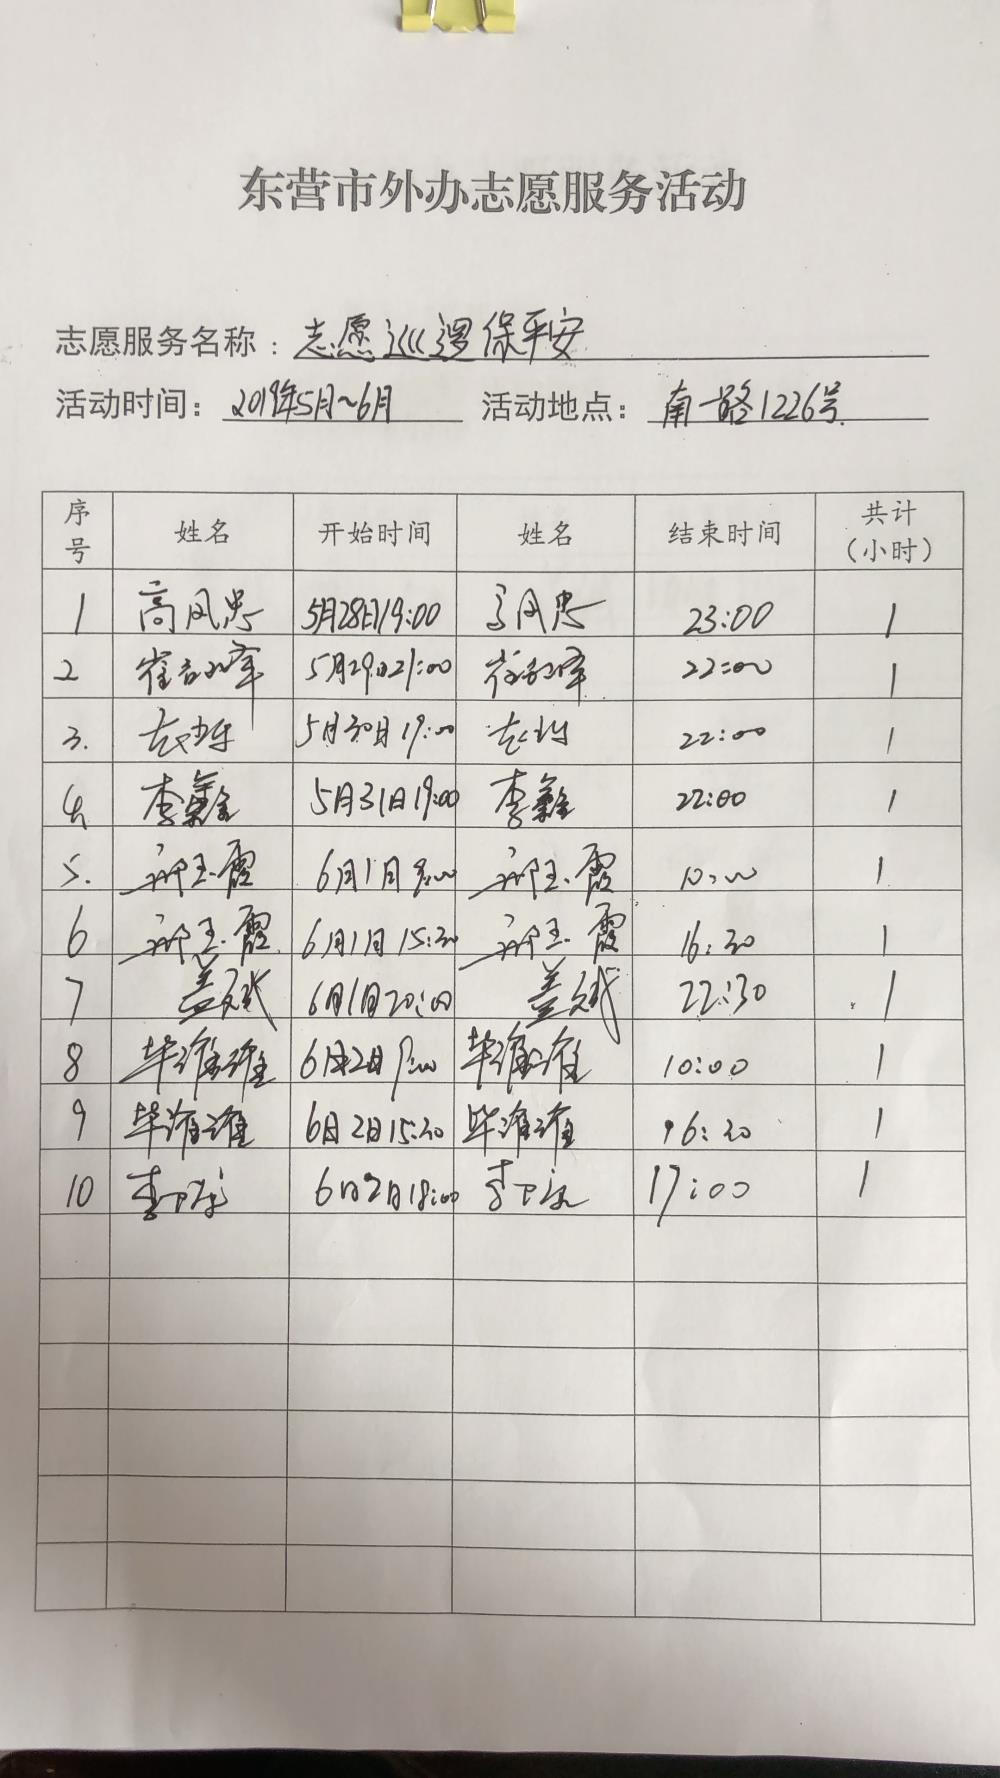 东营市外办志愿服务活动
志愿服务名称：志愿巡逻保平安
活动时间：2019年5月~6月 活动地点：南一路1226号.
序号 姓名 开始时间 姓名 结束时间 共计（小时）
1 高风忠 5月28日19:00 高风忠 23:00 1
2 5月29日21:00 22:00 1
3. 5月30日19:00 22:00 1
4 李鑫 5月31日19:00 李鑫 22:00 1
5. 玉霞 6月1日9:00 玉霞 10:00 1
6 玉霞 6月1日15:30 玉霞 16:30 1
7 盖斌 6月1日20:00 盖斌 22:30 1
8 毕谁谁 6月2日9:00 毕谁谁 10:00 1
9 毕谁谁 6月2日15:30 毕谁谁 16:30 1
10 李 6月2日18:00 李 17:00 1